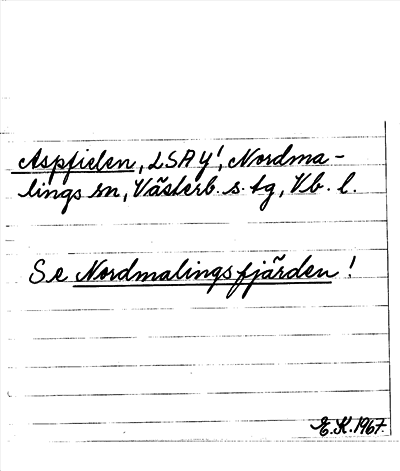 Aspfielen, LSA Y!, Nordma-
lings sn, Västerb. s. tg, Vb. l.
Se Nordmalingsfjärden!
E.K. 1967.